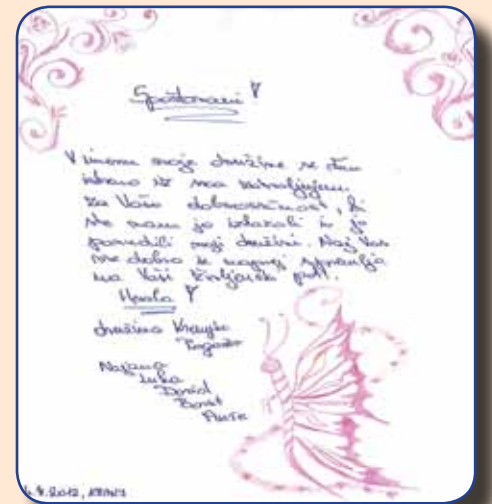 Spoštovani
V imenu moje družine se Vam
iskreno iz srca zahvaljujem
za Vašo dobrosrčnost, ki
ste nam jo izkazali in jo
ponudili moji družini. Naj Vas
vse dobro še naprej spremlja
na Vaši življenjski poti.
Hvala
družina
Luka
David
2012, KRANJ